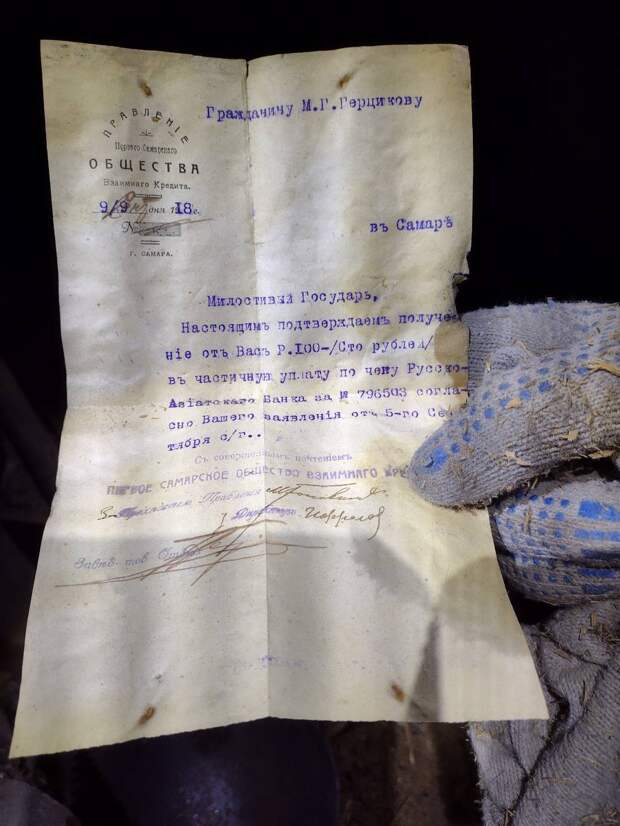 ПРАВЛЕНІЕ
Перваго Самарскаго
ОБЩЕСТВА
Взаимнаго Кредита.
9/9 дня 1918 г.
№
Г. САМАРА.
Гражданину М.Г.Герцикову
въ Самарѣ
Милостивый Государь,
Настоящимъ подтверждаемъ получе-
ніе отъ Васъ Р.100-/Сто рублей/
въ частичную уплату по чеку Русско-
Азіатскаго Банка за № 796503 согла-
сно Вашего заявленія отъ 5-го Сен-
тября с/г..
Съ совершеннымъ почтеніемъ
ПЕРВОЕ САМАРСКОЕ ОБЩЕСТВО ВЗАИМНАГО КРЕ
Правленія
Завѣд.